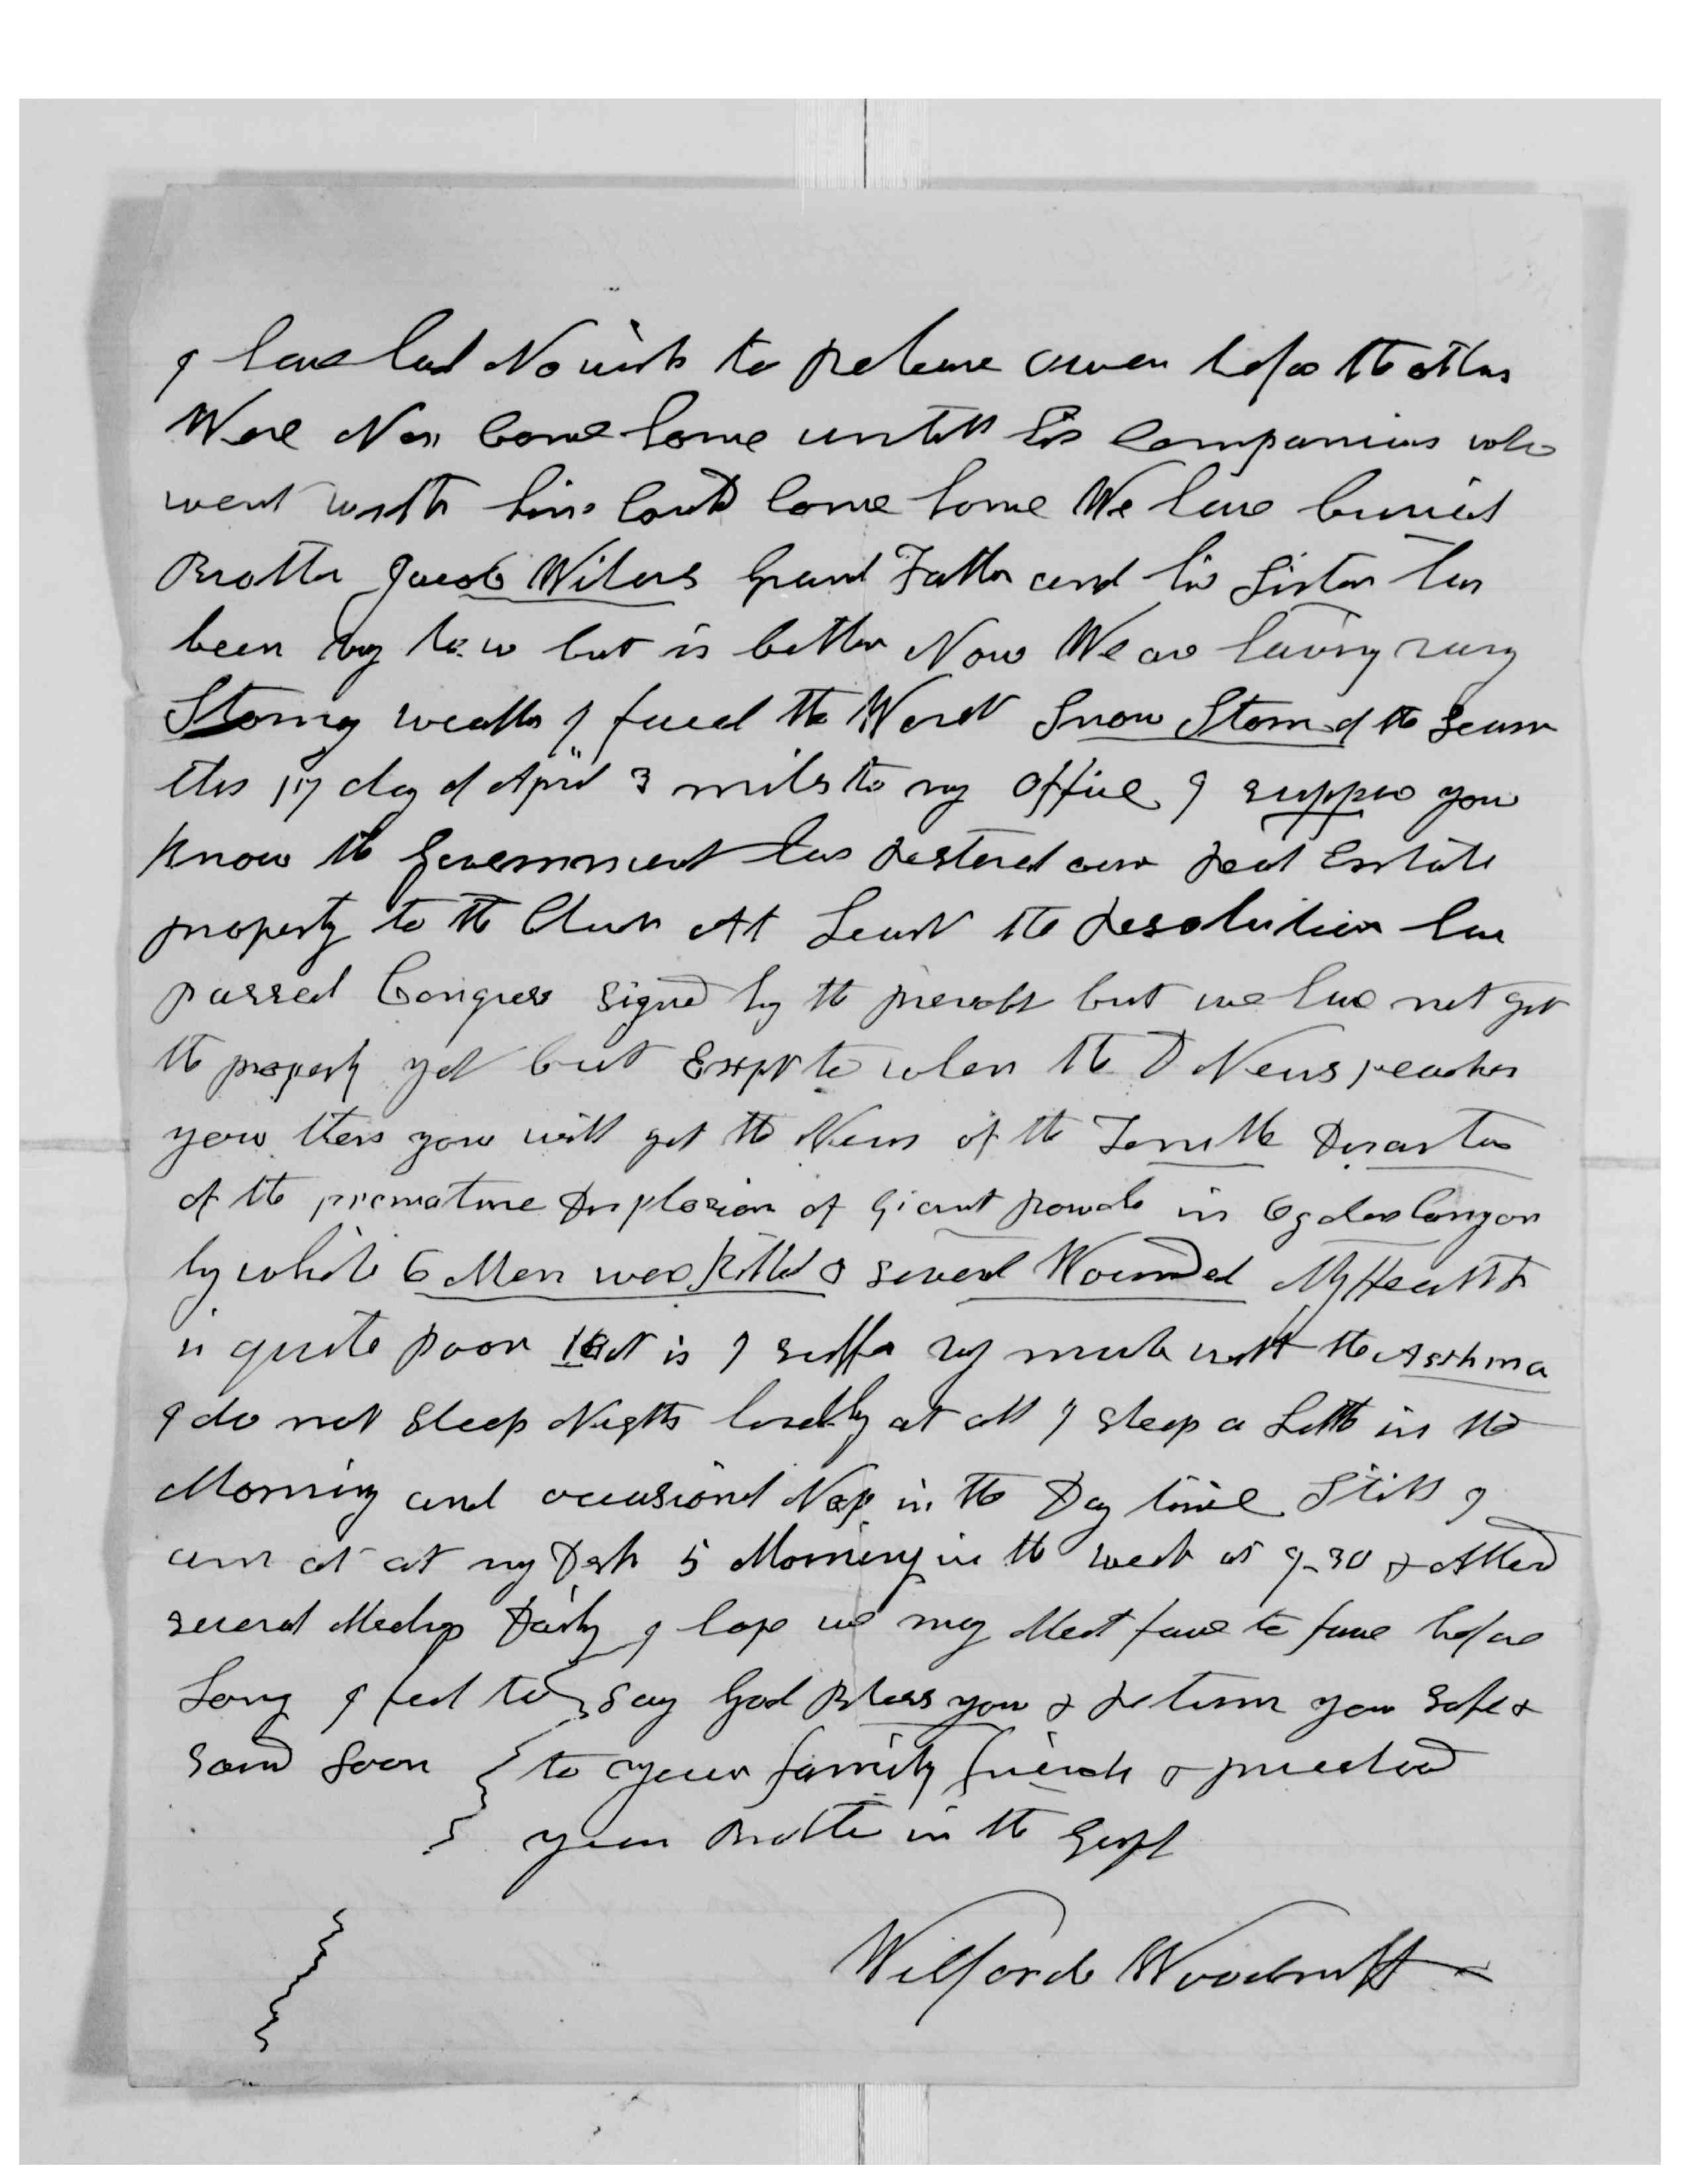 I have had No wish to release owen before the others
Were Nor Come home untill his Companions who
went with him Could Come home We have buried
Brother Jacob Wilers Grand Father and his Sister has
been vary low but is better Now We are having vary
Stormy weather I faced the Worst Snow Storm of the Season
this 17 day of April 3 miles to my office I suppose you
know the Government has restored our real Esstate
property to the Church At Least the resolution have
passed Congress signed by the presidet but we have not got
the property yet but Expt to when the D News reaches
you there you will get the News of the Terrible Disaster
of the premature Dxplosion of Giant powder in Ogden Canyon
by which 6 Men were killed & several Wounded My Health
is quite poor that is I suffer vary much with the Asthma
I do not Sleep Nights hardly at all I sleep a Little in the
Morning and occasional Nap in the Day time Still I
am at at my Desk 5 Mornings in the week at 9-30 & Attend
several Meetings Daily I hope we may Meet face to face before
Long I feel to say God Bless you & return you safe &
sound soon to your family friends & priesthood
your Brother in the Gospel
Wilford Woodruff